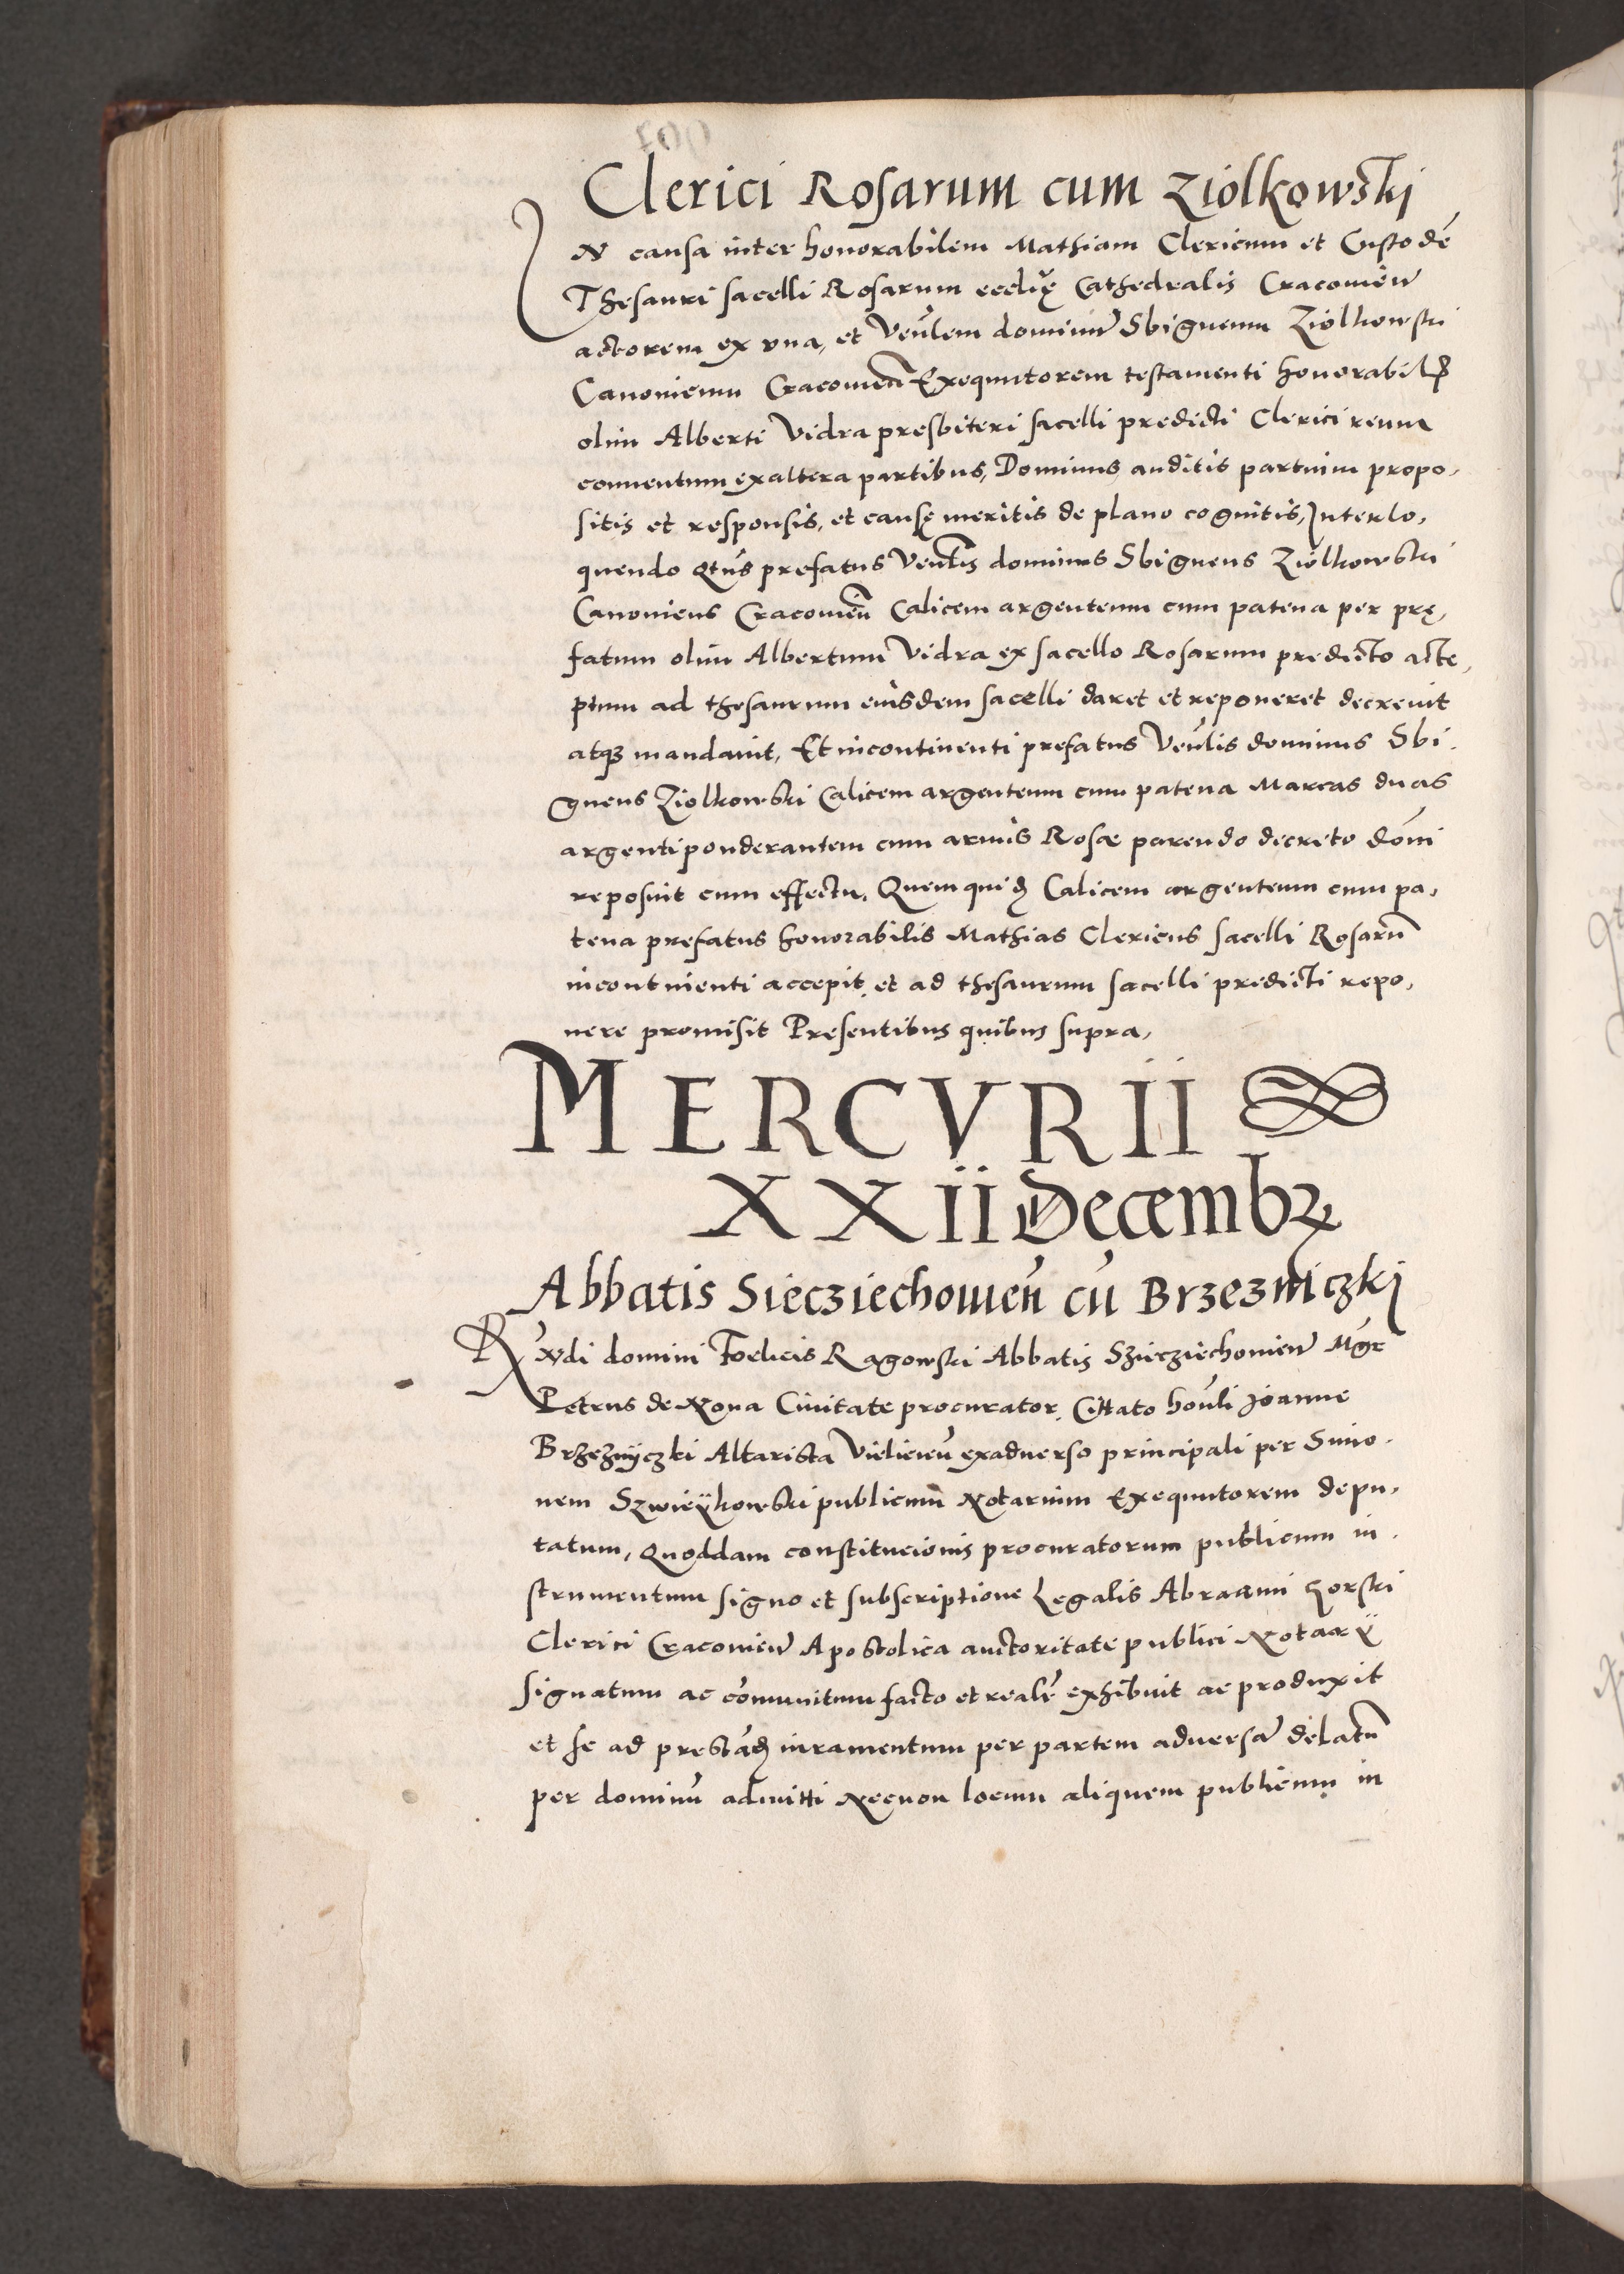 Clerici Rosarum cum Ziolkowski
IN causa inter honorabilem Mathiam Clericum et Custodē
Thesauri sacelli Rosarum ecclię Cathedralis Cracovieñ
actorem ex una, et Veñlem dominū Sbigneum Ziolkowski
Canonicum Cracovieñ Exequutorem testamenti honorabilis
olim Alberti Vidra presbiteri sacelli predicti Clerici reum
conventum ex altera partibus, Dominus auditis partium propo,
sitis et responsis, et causę meritis de plano cognitis, Interlo,
quendo Qtũs prefatus Veñlis dominus Sbigneus Ziolkowski
Canonicus Cracovieñ Calicem argenteum cum patena per prę,
fatum olim Albertum Vidra ex sacello Rosarum predicto acce,
ptum ad thesaurum eiusdem sacelli daret et reponeret decrevit
atqꝫ mandavit, Et incontinenti prefatus Veñlis dominus Sbi,
gneus Ziolkowski Calicem argenteum cum patena Marcas duas
argenti ponderantem cum armis Rosæ parendo decreto dōni
reposuit cum effectu, Quem quidē Calicem argenteum cum pa,
tena prefatus honorabilis Mathias Clericus sacelli Rosarū
incontinenti accepit, et ad thesaurum sacelli predicti repo,
nere promisit Presentibus quibus supra,
MERCVRII
XXII Decembꝝ
Abbatis Siecziechovieñ cū Brzezniczki
Rṽdi domini Foelicis Ragowski Abbatis Sziecziechovieñ Mgr̃
Petrus de Nova Civitate procurator, Cittato hoñli Joanne
Brzeznyczki Altarista Vielicieñ exadverso principali per Simo,
nem Szwieÿkowski publicum Notarium Exequutorem depu,
tatum, Quoddam constitucionis procuratorum publicum in,
strumentum signo et subscriptione Legalis Abraami Gorski
Clerici Cracovieñ Apostolica auctoritate publici Notarÿ
signatum ac cōmunitum facto et realē exhibuit ac produxit
et se ad prestādū iuramentum per partem adversā delatū
per dominū admitti Necnon locum aliquem publicum in